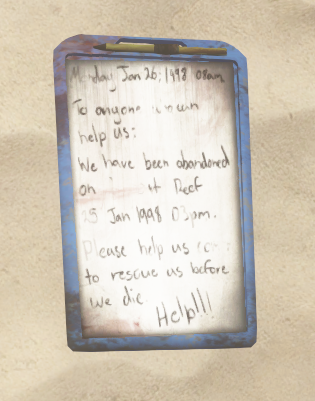 Monday Jan 26, 1998 08am
To anyone can
help us:
We have been abandoned
on Reef
25 Jan 1998 03pm.
Please help us
to rescue us before
we die.
Help!!!